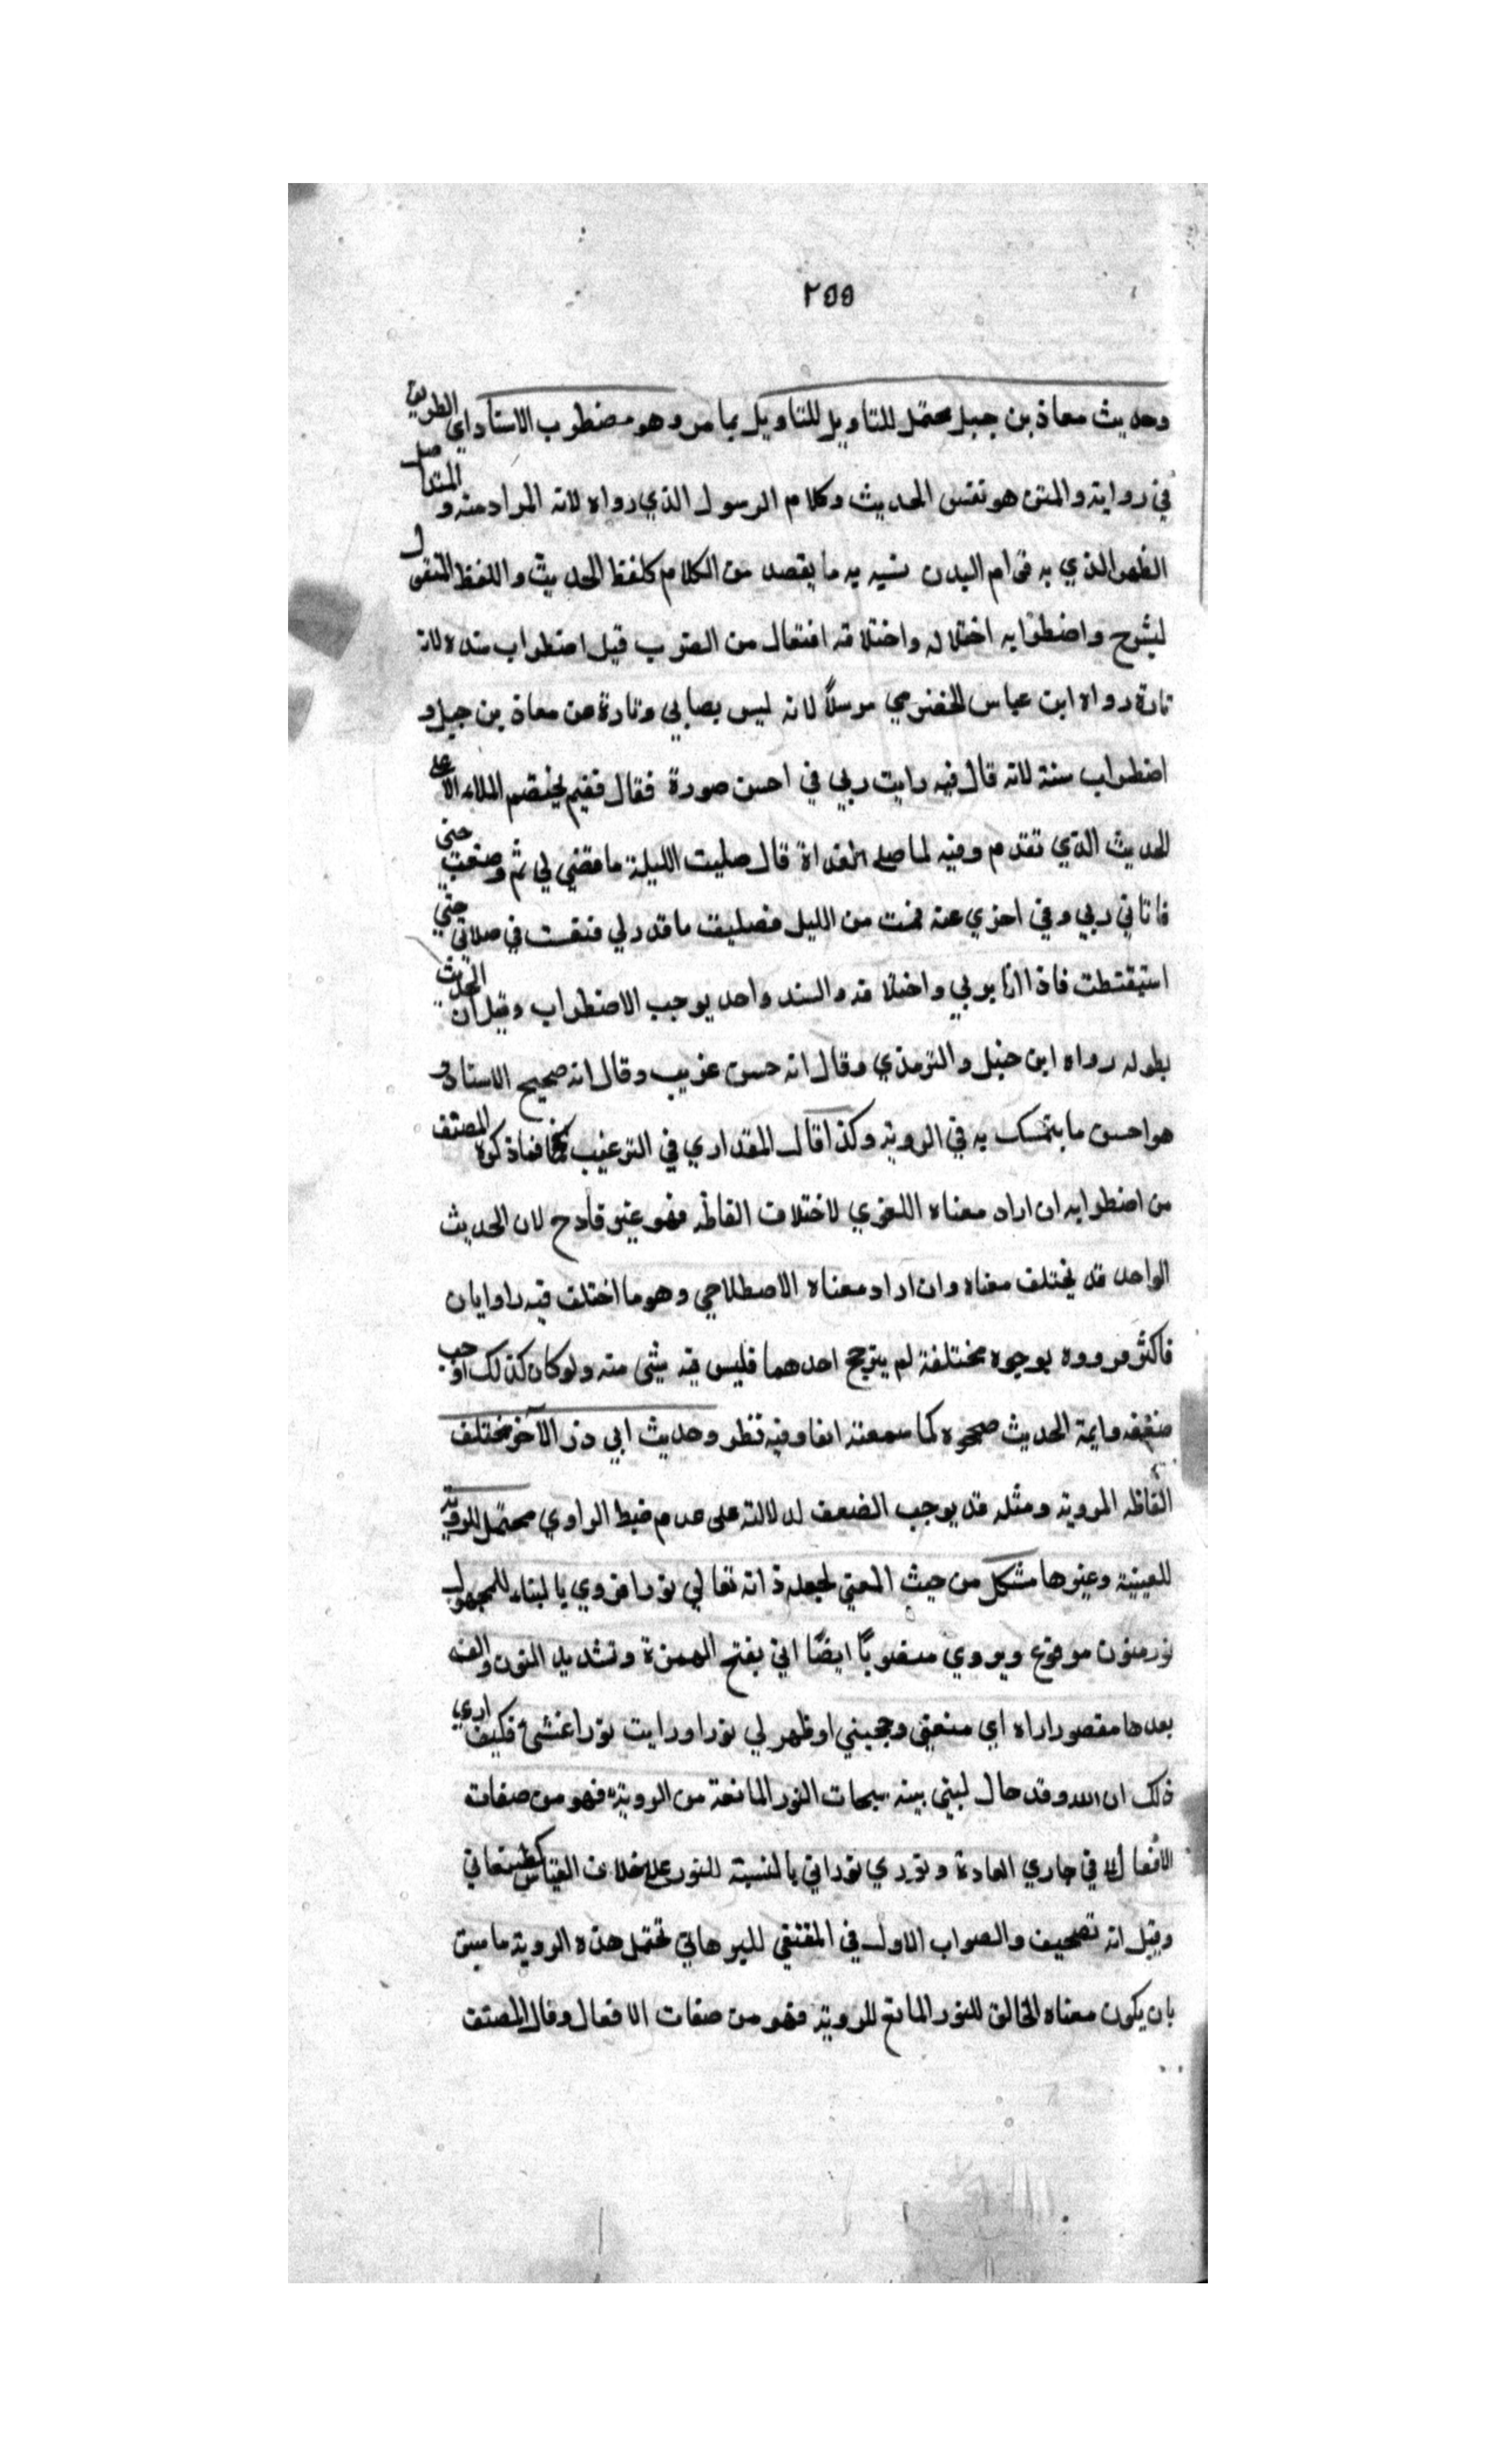 ٢٥٥
وحديث معاذ بن جبل محتمل للتاويل للتاويل بما مر وهو مضطرب الاسناد اي الطريق
في رواية والمتن هو نفس الحديث وكلام الرسول الذي رواه لانه المراد منه و المتن اصل
الظهر الذي به قوام البدن شبه به ما يقصد من الكلام كلفظ الحديث واللفظ المتقول
ليشرح واضطرابه اختلاله واختلافه افتعال من الضرب قيل اضطراب سنده لانه
تارة رواه ابن عباس الحضرمي مرسلاً لانه ليس بصابي وتارة عن معاذ بن جبل و
اضطراب سنة لانه قال فيه رايت ربي في احسن صورة فقال ففيم يختصم الملاء الاعلى
الحديث الذي تقدم وفيه لما صلى الغداة قال صليت الليلة ما قضي لي ثم وضعت جنبي
فاتاني ربي وفي اخري عنه قمت من الليل فصليت ما قدر لي فنفست في صلاتي حتي
استيقتطت فاذا انا بربي واختلافه والسند واحد يوجب الاضطراب وقيل ان الحديث
بطوله رواه ابن حنبل والترمذي وقال انه حسن غريب وقال انه صحيح الاسناد و
هو احسن ما يتمسك به في الروية وكذا قال المقداري في الترغيب فما ذكره المصنف
من اضطرابه ان اراد معناه اللغوي لاختلاف الفاظه فهو غير قادح لان الحديث
الواحد قد يختلف معناه وان اراد معناه الاصطلاحي وهو ما اختلف فيه راوايان
فاكثر فرووه بوجوه مختلفة لم يترجح احدهما فليس فيه شئ منه ولو كان كذلك اوجب
ضعفه وايمة الحديث صححوه كما سمعته انفا وفيه نظر وحديث ابي ذر الآخر مختلف
الفاظه المروية ومثله قد يوجب الضعف لدلالته على عدم ضبط الراوي محتمل للروية
للعينية وغيرها مشكل من حيث المعني لجعله ذاته تعالي نورا فروي بالبناء للمجهول
نور منون مرفوع ويروي منصوبًا ايضًا اني بفتح الهمزة وتشديد النون والف
بعدها مقصور اراه اي منعني وحجبني او ظهر لي نورا ورايت نورا غشئ فكيف اري
ذلك ان الله وقد حال لبيني بينه سبحات النور المانعة من الروية فهو من صفات
الافعال في جاري العادة ونوري نوراني بالنسبة للنور على خلاف القياس كطبعاني
وقيل انه تصحيف والصواب الاول في المقتفي للبرهاني تحتمل هذه الروية ما سبق
بان يكون معناه الخالق للنور المانع للروية فهو من صفات الافعال وقال المصنف